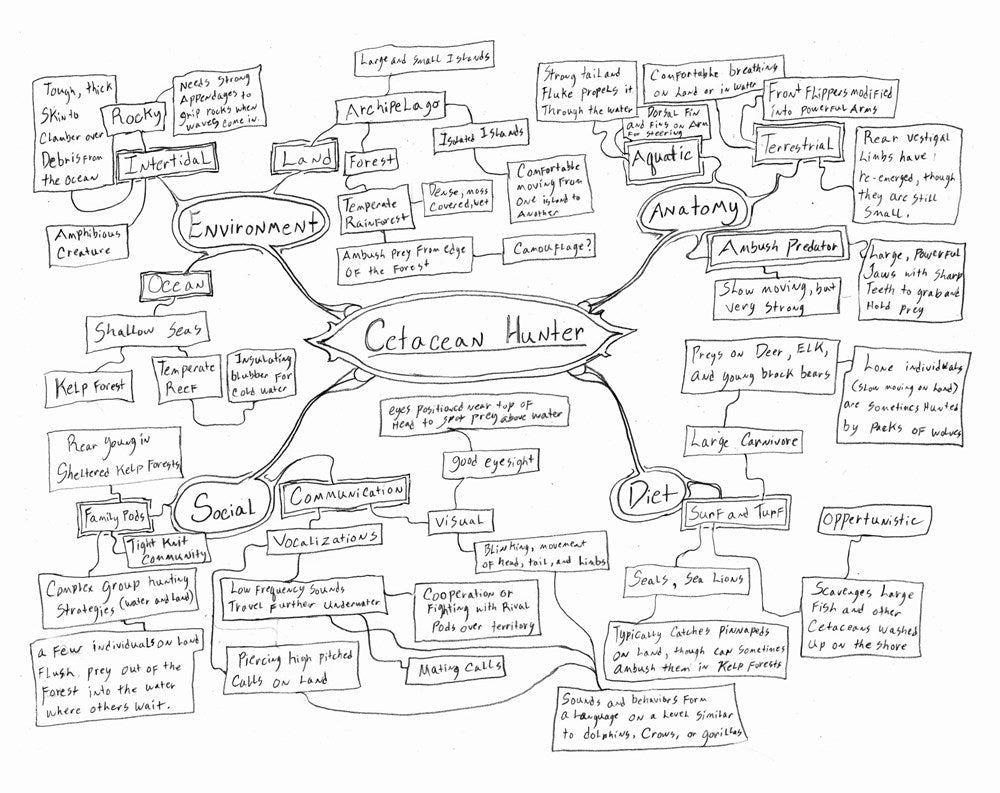 Cetacean Hunter
Environment
Intertidal
Rocky
Tough, thick
Skin to
Clamber over
Debris from
the ocean
Needs Strong
Appendages to
grip rocks when
waves come in.
Amphibious
Creature
Land
Archipelago
Large and Small Islands
Isolated Islands
Comfortable
moving from
one island to
Another
Forest
Temperate
Rainforest
Dense, moss
Covered, wet
Ambush prey from edge
of the forest
Camouflage?
Ocean
Shallow Seas
Kelp Forest
Temperate
Reef
Insulating
blubber for
Cold water
Anatomy
Aquatic
Strong tail and
Fluke propels it
Through the water
Dorsal Fin
and Fins on Arm
for steering
Terrestrial
Comfortable breathing
on Land or in water
Front Flippers modified
into powerful Arms
Rear vestigal
Limbs have
re-emerged, though
they are still
Small.
Ambush Predator
Slow moving, but
very strong
Large, Powerful
Jaws with sharp
Teeth to grab and
Hold prey
Social
Family Pods
Rear Young in
Sheltered Kelp Forests
Tight Knit
Community
Complex Group hunting
Strategies (water and land)
a few individuals on Land
Flush prey out of the
Forest into the water
where others wait.
Communication
Vocalizations
Low Frequency Sounds
Travel Further underwater
Cooperation or
Fighting with Rival
Pods over territory
Mating Calls
Piercing high pitched
Calls on Land
Visual
good eyesight
eyes positioned near top of
Head to spot prey above water
Blinking, movement
of head, tail, and limbs
Sounds and behaviors form
a Language on a level similar
to dolphins, Crows, or gorillas
Diet
Surf and Turf
Large Carnivore
Preys on Deer, Elk,
and young black bears
Lone individuals
(slow moving on land)
are sometimes Hunted
by packs of wolves
Seals, Sea Lions
Typically Catches pinnapeds
on Land, though can sometimes
ambush them in Kelp Forests
Oppertunistic
Scavenges Large
Fish and other
Cetaceans washed
up on the shore